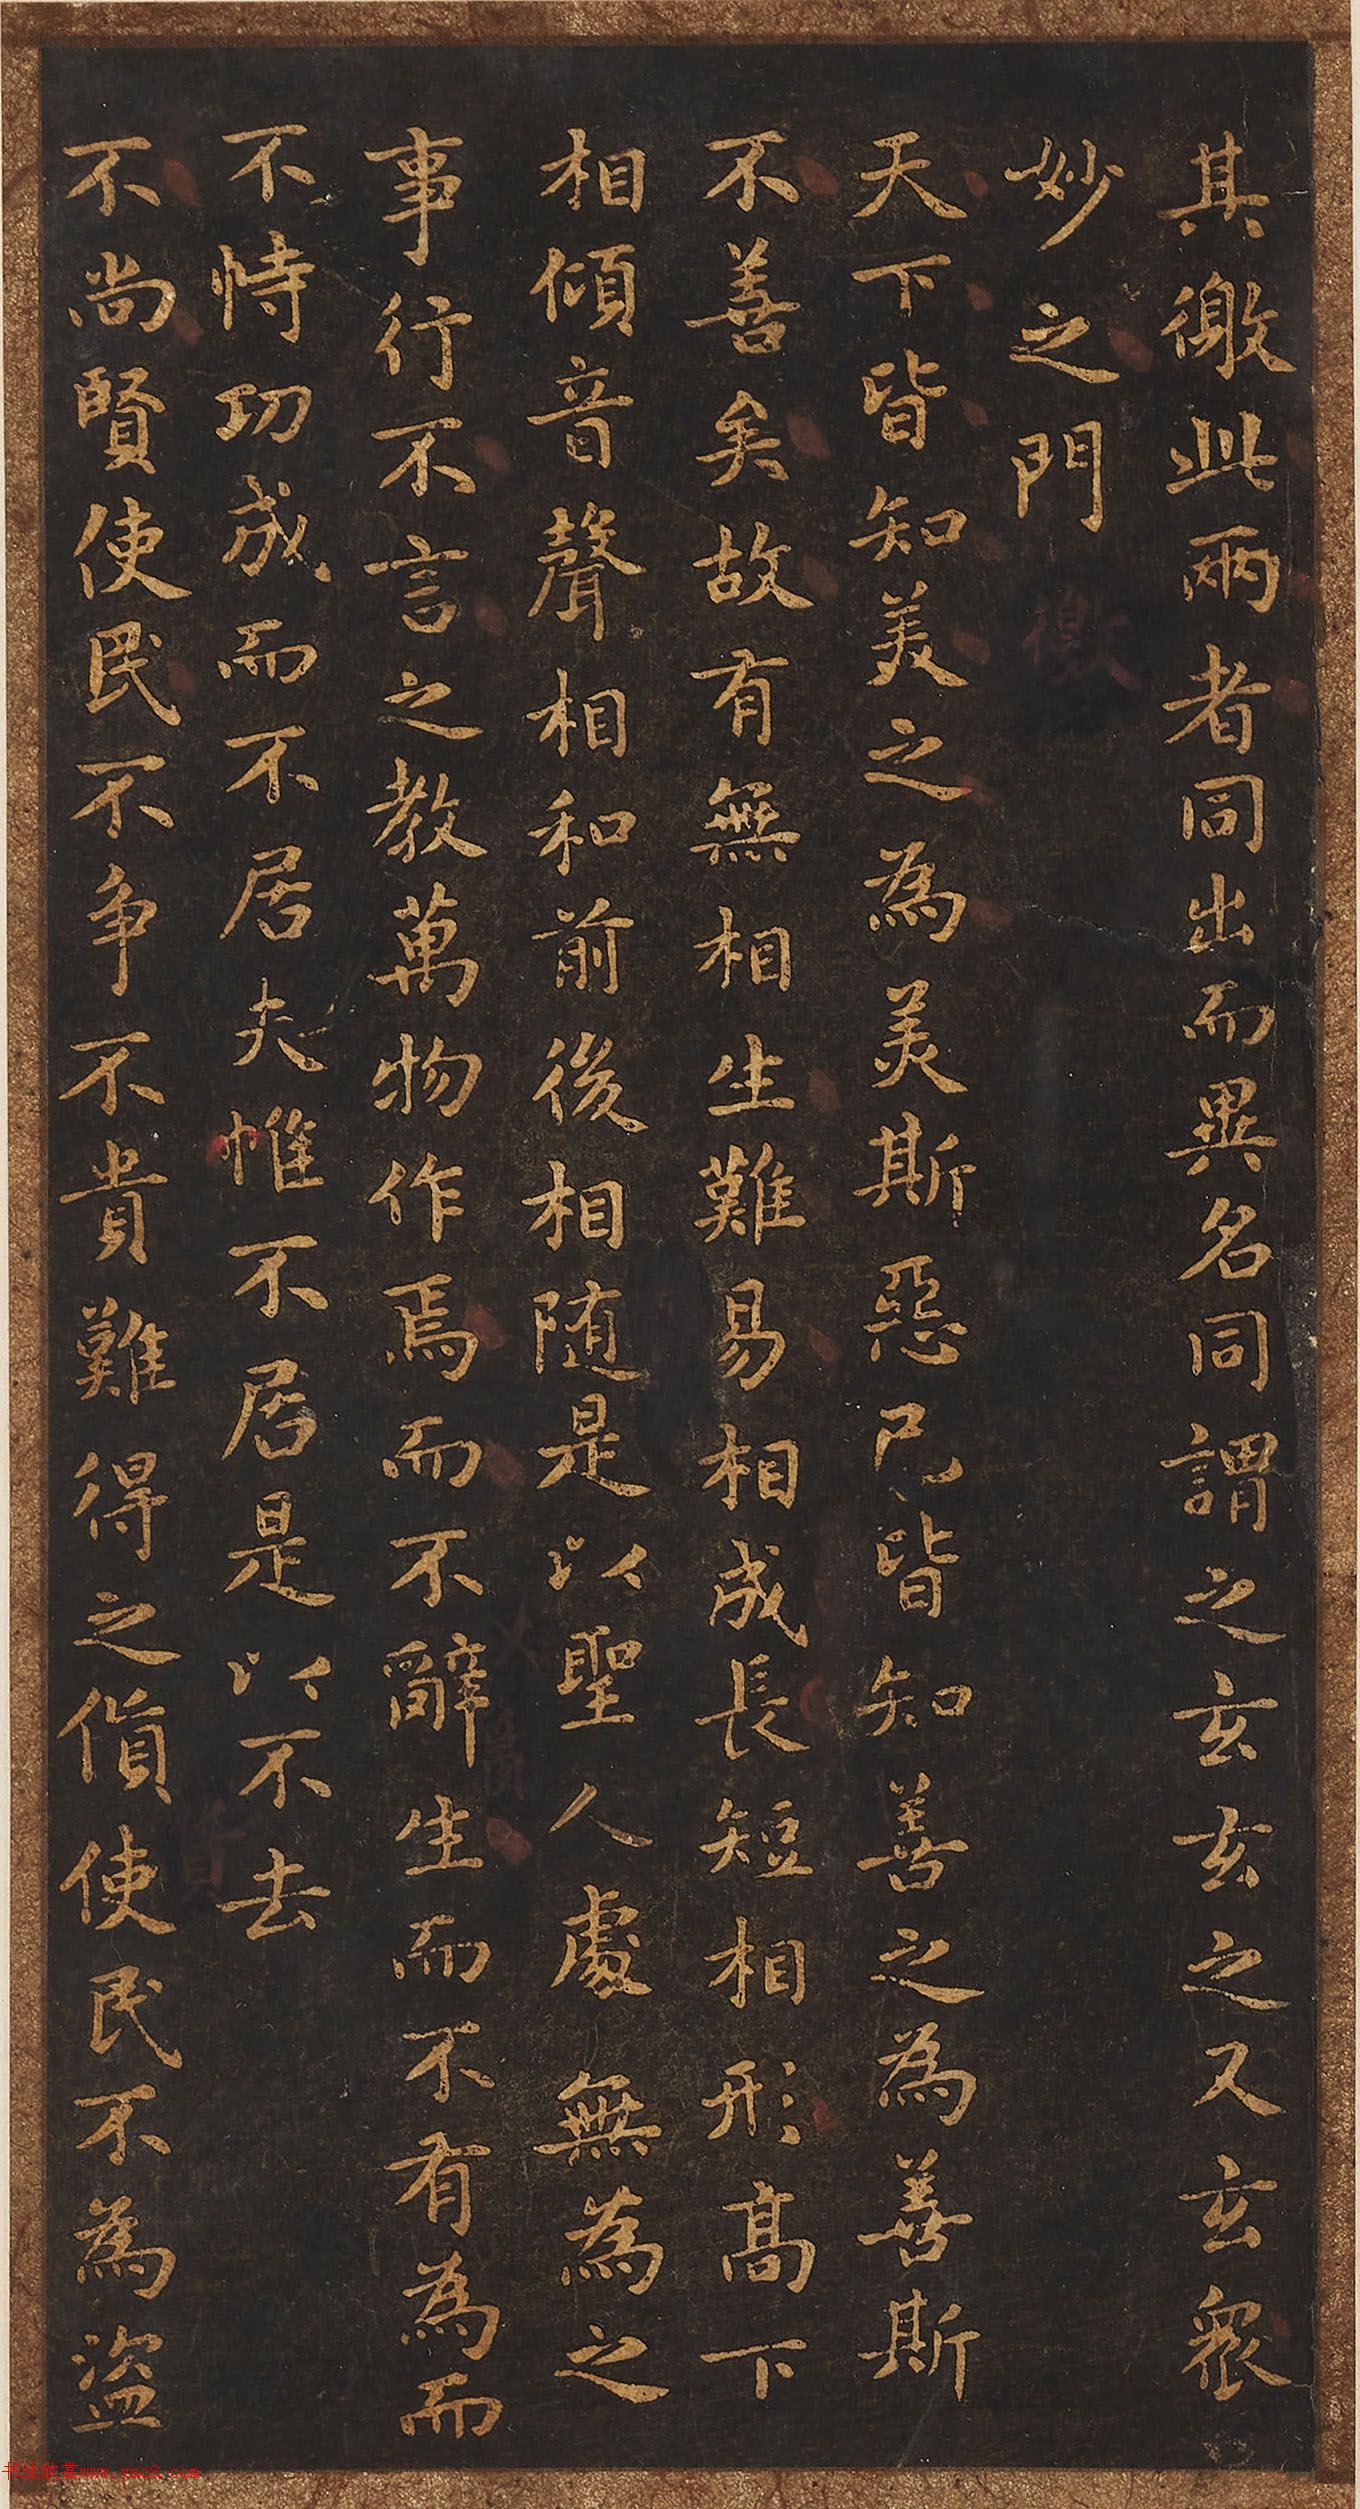 其徼此兩者同出而異名同謂之玄玄之又玄衆
妙之門
天下皆知美之為美斯惡已皆知善之為善斯
不善矣故有無相生難易相成長短相形髙下
相傾音聲相和前後相随是以聖人處無為之
事行不言之教萬物作焉而不辭生而不有為而
不恃功成而不居夫惟不居是以不去
不尚賢使民不争不貴難得之貨使民不為盗
书法欣赏www.yac8.com